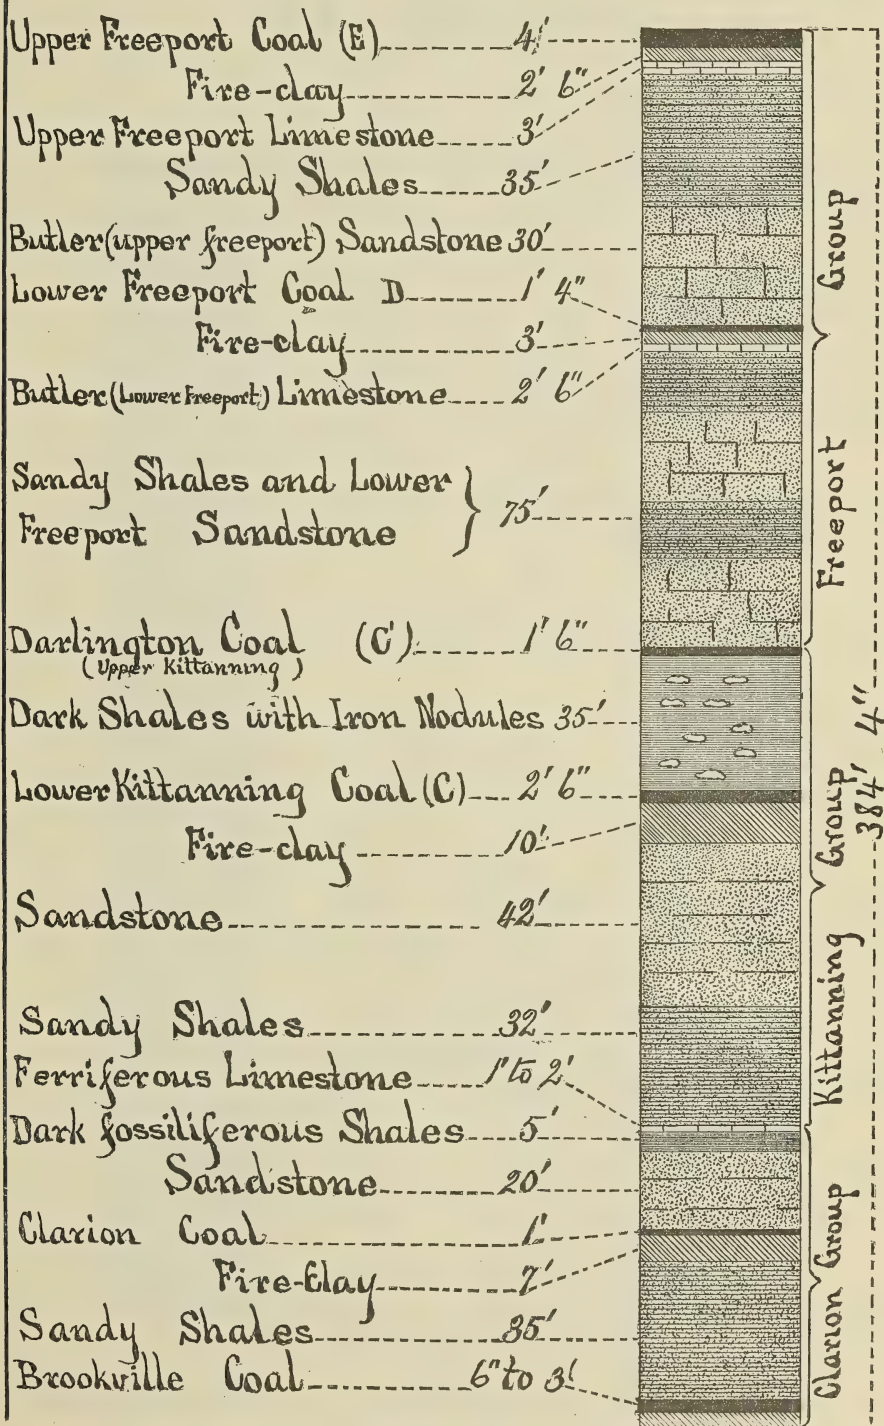 Upper Freeport Coal (E) 4'
Fire-clay 2' 6"
Upper Freeport Limestone 3'
Sandy Shales 35'
Butler (upper freeport) Sandstone 30'
Lower Freeport Coal D 1' 4"
Fire-clay 3'
Butler (Lower Freeport) Limestone 2' 6"
Sandy Shales and Lower
Freeport Sandstone 75'
Darlington Coal (C') 1' 6"
(Upper Kittanning)
Dark Shales with Iron Nodules 35'
Lower Kittanning Coal (C) 2' 6"
Fire-clay 10'
Sandstone 42'
Sandy Shales 32'
Ferriferous Limestone 1' to 2'
Dark fossiliferous Shales 5'
Sandstone 20'
Clarion Coal 1'
Fire-Clay 7'
Sandy Shales 35'
Brookville Coal 6" to 3'
Freeport Group
Kittanning Group
Clarion Group
384' 4"